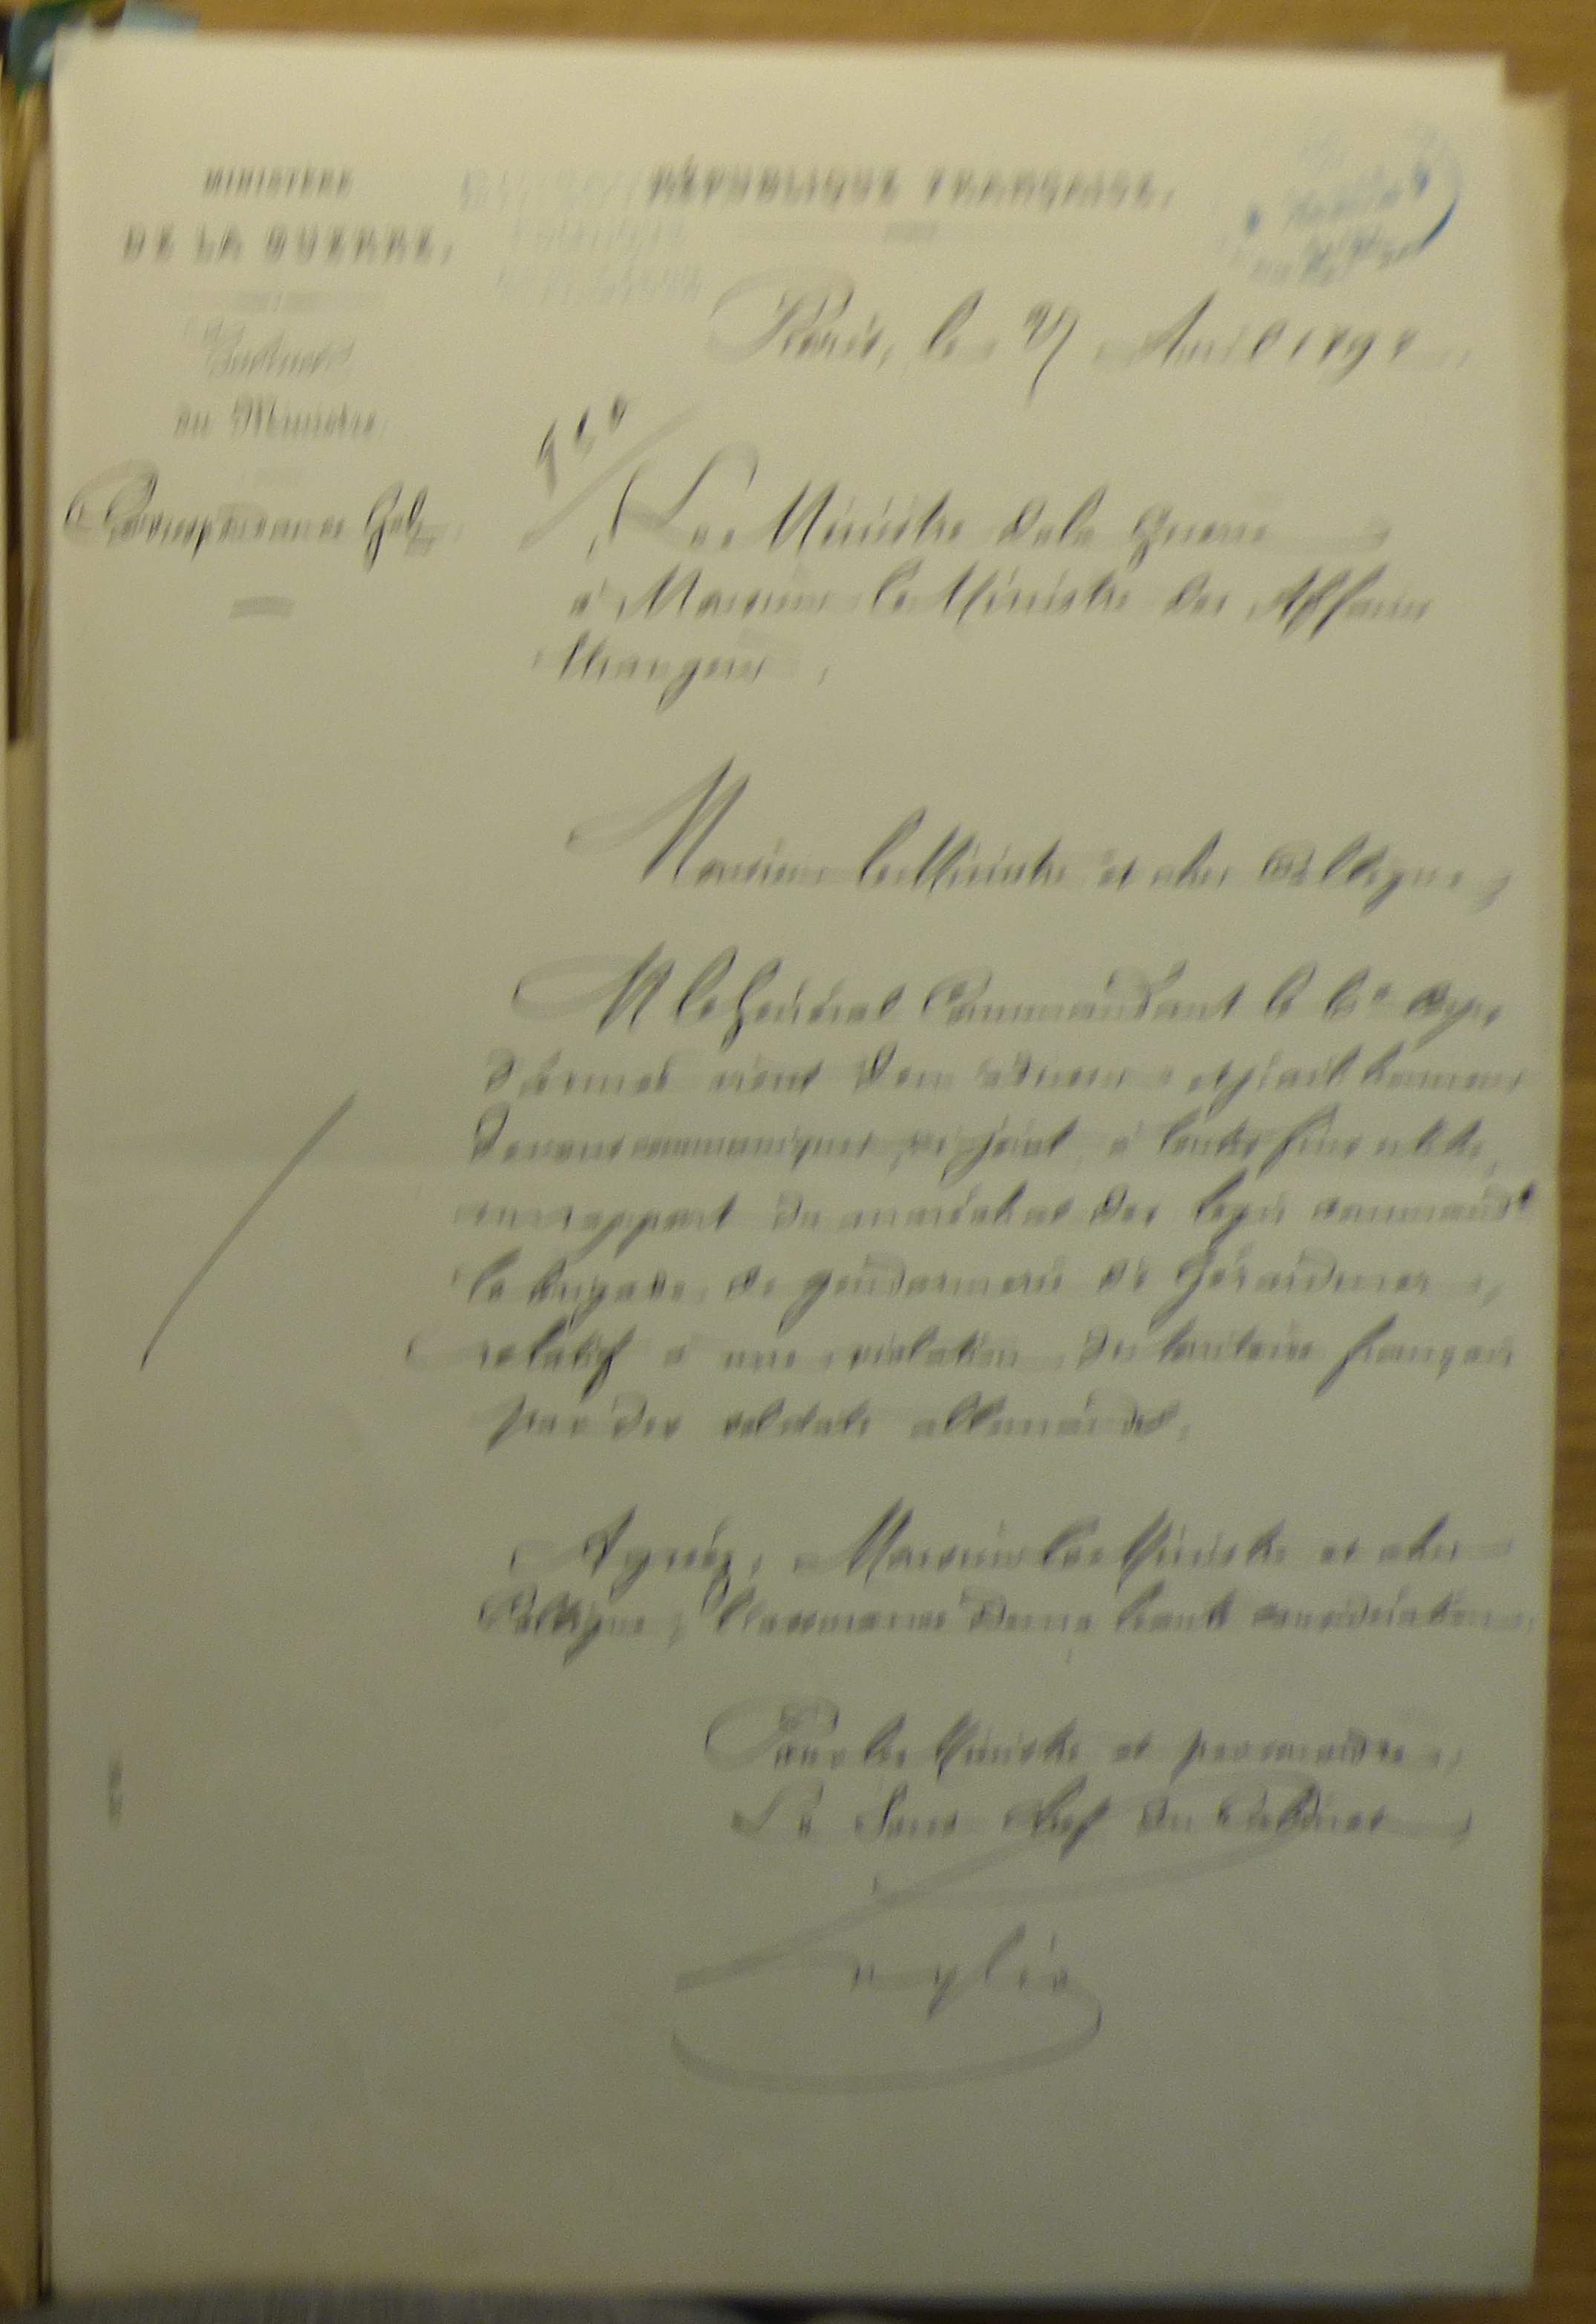 MINISTÈRE
DE LA GUERRE.
RÉPUBLIQUE FRANÇAISE.
Cabinet
du Ministre
Correspondance Gale
Paris, le 27 Avril 189
Le Ministre de la Guerre
à Monsieur le Ministre des Affaires
Etrangères.
Monsieur le Ministre et cher Collègue,
M le Général Commandant le 6e Corps
d'armée vient de m'adresser et j'ai l'honneur
de vous communiquer ci-joint, à toutes fins utiles,
un rapport du maréchal des logis commandt
la brigade de gendarmerie de Gérardmer,
relatif à une violation du territoire français
par des soldats allemands.
Agréez, Monsieur le Ministre et cher
Collègue, l'assurance de ma haute considération.
Pour le Ministre et par ordre,
Le Sous Chef du Cabinet